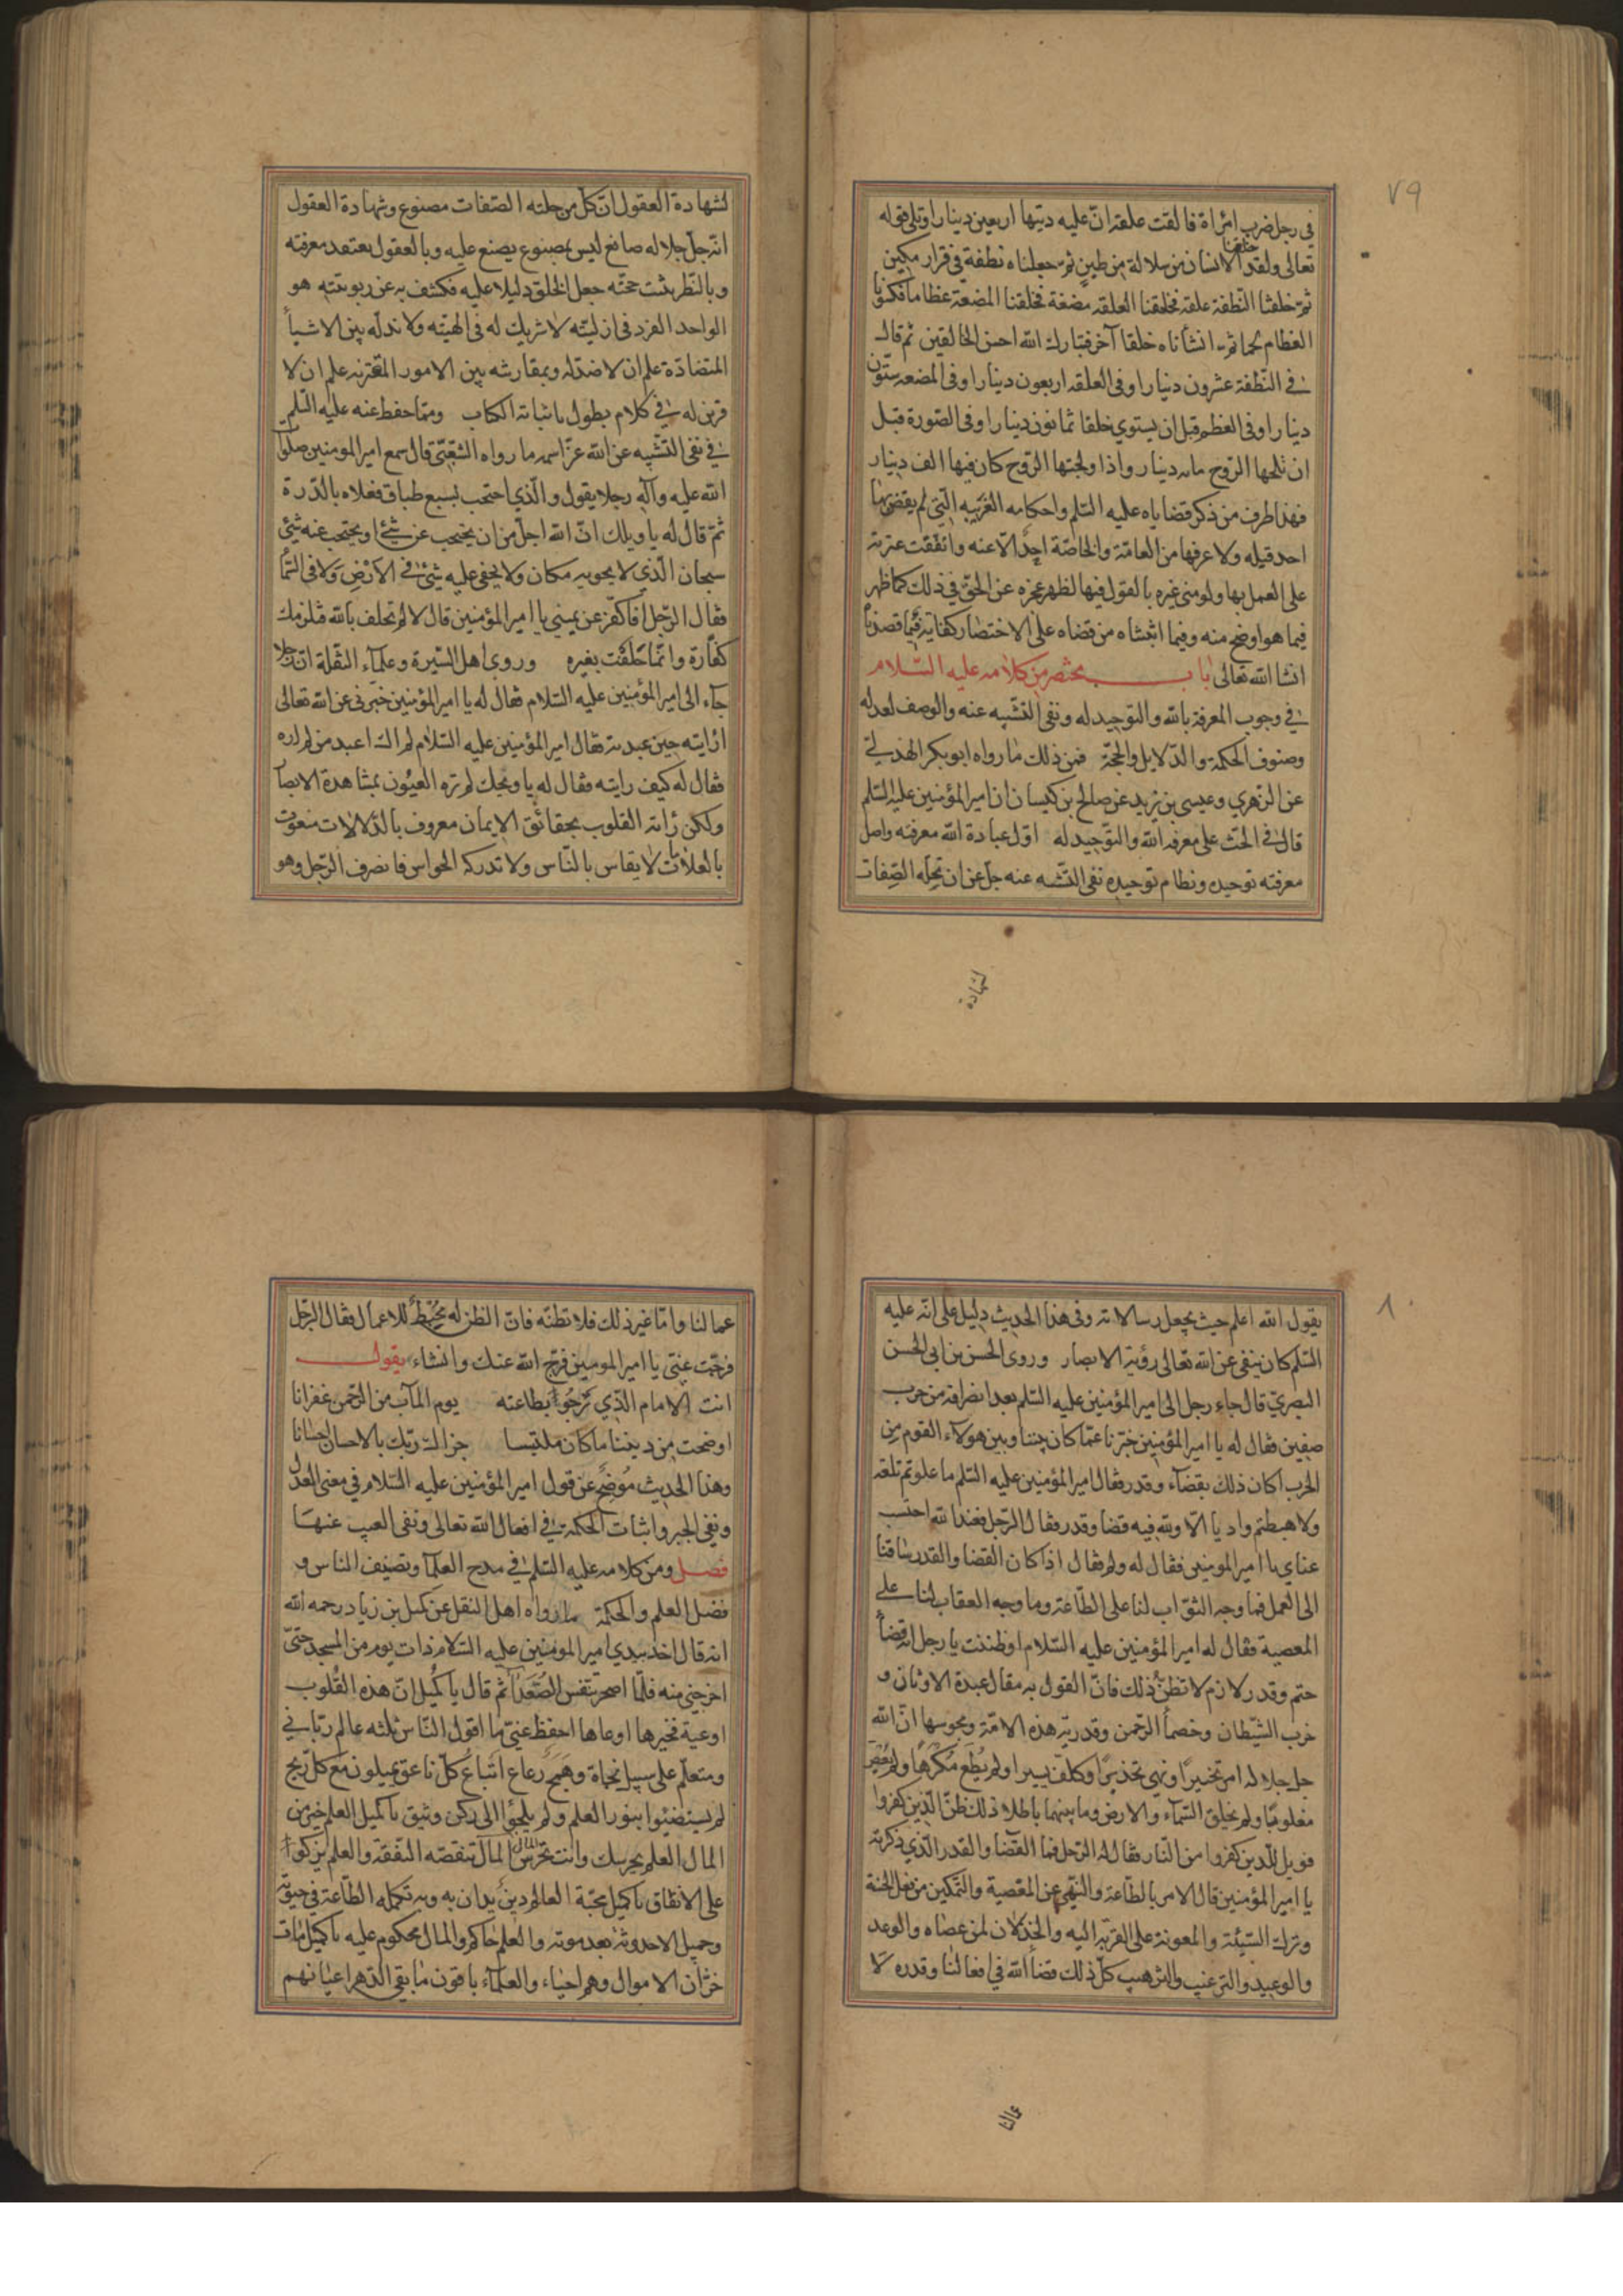 ٧٩
في رجل ضرب امرأة فالقت علقة انّ عليه ديتها اربعين دينارا وتلى قوله
تعالى ولقد خلقنا الانسان من سلالة من طين ثم جعلناه نطفة في قرار مكين
ثمّ خلقنا النّطفة علقة فخلقنا العلقه مضغة فخلقنا المضغة عظاما فكسونا
العظام لحما ثم انشأناه خلقا آخر فتبارك الله احسن الخالقين ثم قال
في النّطفة عشرون دينارا وفى العلقه اربعون دينارا وفى المضغه ستّون
دينارا وفى العظم قبل ان يستوي خلقا ثمانون دينارا وفى الصّورة قبل
ان تلجها الرّوح مايه دينار واذا ولجتها الرّوح كان فيها الف دينار
فهذا طرف من ذكر قضاياه عليه السّلم واحكامه الغريبه الّتي لم يقض بها
احد قبله ولا عرفها من العامّة والخاصّة احد الّا عنه واتفقت عترته
على العمل بها ولو منى غيره بالقول فيها لظهر عجزه عن الحق في ذلك كما ظهر
فيما هو اوضح منه وفيما اثبتناه من قضاه على الاختصار كفاية فيما قصدنا
انشا الله تعالى باب مختصر من كلامه عليه السّلام
في وجوب المعرفة بالله والتوحيد له ونفى التشبيه عنه والوصف لعدله
وصنوف الحكمة والدّلايل والحجّة فمن ذلك ما رواه ابو بكر الهذلي
عن الزهري وعيسى بن زيد عن صالح بن كيسان ان امير المؤمنين عليه السّلم
قال في الحثّ على معرفة الله والتّوحيد له اوّل عبادة الله معرفته واصل
معرفته توحيده ونظام توحيده نفى التشبيه عنه جلّ عن ان تحلّه الصّفات
لشهادة
لشهادة العقول انّ كلّ من حلته الصّفات مصنوع وشهادة العقول
انّه جلّ جلاله صانع ليس بمصنوع بصنع عليه وبالعقول يعتقد معرفته
وبالنّظر يثبت حجّته جعل الخلق دليلا عليه فكشف به عن ربوبيته هو
الواحد الفرد في ازليّته لا شريك له في الهيّته ولا ندّ له بين الاشيأ
المتضادّة علم ان لا ضدّ له وبمقارنته بين الامور المقترنه علم ان لا
قرين له في كلام يطول باثباته الكتاب وممّا حفظ عنه عليه السّلم
في نفى التّشبيه عن الله عزّ اسمه ما رواه الشّعبيّ قال سمع امير المومنين صلوات
الله عليه وآله رجلا يقول والّذي احتجب بسبع طباق فعلاه بالدّرة
ثمّ قال له يا ويلك انّ الله اجلّ من ان يحتجب عن شئ او يحتجب عنه شئ
سبحان الّذي لا يحويه مكان ولا يخفى عليه شئ في الارض ولا في السّمأ
فقال الرّجل افاكفّر عن يميني يا امير المؤمنين قال لا لم تحلف بالله فيلزمك
كفّارة وانّما حلفت بغيره وروى اهل السّيرة وعلمآء النّقلة انّ رجلا
جآء الى امير المؤمنين عليه السّلام فقال له يا امير المؤمنين خبّرنى عن الله تعالى
ارايته حين عبدته فقال امير المؤمنين عليه السّلام لم اك اعبد من لم اره
فقال له كيف رايته فقال له يا ويحك لم تره العيون بمشاهدة الابصار
ولكن رأته القلوب بحقائق الايمان معروف بالدّلالات منعوت
بالعلامات لا يقاس بالنّاس ولا تدركه الحواس فانصرف الرّجل وهو
٨٠
يقول الله اعلم حيث يجعل رسالاته وفى هذا الحديث دليل على انّه عليه
السّلم كان ينفى عن الله تعالى رؤية الابصار وروى الحسن بن ابى الحسن
البصريّ قال جاء رجل الى امير المؤمنين عليه السّلم بعد انصرافه من حرب
صفين فقال له يا امير المؤمنين خبّرنا عمّا كان بيننا وبين هولآء القوم من
الحرب اكان ذلك بقضآء وقدر فقال امير المؤمنين عليه السّلم ما علوتم تلعة
ولا هبطتم واديا الّا ولله فيه قضا وقدر فقال الرّجل فعند الله احتسب
عناي يا امير المومنين فقال له ولم فقال اذا كان القضا والقدر ساقنا
الى العمل فما وجه الثوّاب لنا على الطّاعة وما وجه العقاب لنا على
المعصية فقال له امير المؤمنين عليه السّلام اوظننت يا رجل انه قضأ
حتم وقدر لازم لا تظنّ ذلك فانّ القول به مقال عبدة الاوثان و
حزب الشّيطان وخصمأ الرّحمن وقدريّه هذه الامّة ومجوسها انّ الله
جل جلاله امر تخييرا ونهى تحذيرا وكلّف يسيرا ولم يطع مكرها ولم يعص
مغلوبا ولم يخلق السّمآء والارض وما بينهما باطلا ذلك ظنّ الّذين كفروا
فويل للّذين كفروا من النّار فقال له الرّجل فما القضا والقدر الّذي ذكرته
يا امير المؤمنين قال الامر بالطّاعة والنّهي عن المعصية والتّمكين من فعل الحسنة
وترك السّيّئة والمعونة على القربة اليه والخذلان لمن عصاه والوعد
والوعيد والترغيب والترهيب كلّ ذلك قضأ الله في افعالنا وقدره لا
عمالنا
عمالنا وامّا غير ذلك فلا تظنّه فانّ الظنّ له محبط للاعمال فقال الرّجل
فرّجت عنّى يا امير المومنين فرّج الله عنك وانشاء يقول
انت الامام الّذي نرجو بطاعته يوم المآب من الرّحمن غفرانا
اوضحت من ديننا ما كان ملتبسا جزاك ربّك بالاحسان احسانا
وهذا الحديث موضح عن قول امير المؤمنين عليه السّلام في معنى العدل
ونفى الجبر واثبات الحكمة في افعال الله تعالى ونفى العيب عنها
فصل ومن كلامه عليه السّلم في مدح العلمآ وتصنيف الناس و
فضل العلم والحكمة ما رواه اهل النقل عن كميل بن زياد رحمه الله
انه قال اخذ بيدي امير المومنين عليه السّلام ذات يوم من المسجد حتىّ
اخرجني منه فلمّا اصحر تنفّس الصّعدآ ثم قال يا كميل انّ هذه القلوب
اوعية فخيرها اوعاها احفظ عنّى ما اقول النّاس ثلثه عالم ربّاني
ومتعلّم على سبيل نجاة وهمج رعاع اتباع كلّ ناعق يميلون مع كلّ ريح
لم يستضيئوا بنور العلم ولم يلجؤا الى ركن وثيق يا كميل العلم خير من
المال العلم يحرسك وانت تحرس المال المال تنقصه النّفقة والعلم يزكوا
على الانفاق يا كميل محبّة العالم دين يدان به وبه تكمله الطّاعة في حيوته
وجميل الاحدوثة بعد موته والعلم حاكم والمال محكوم عليه يا كميل مات
خزّان الاموال وهم احياء والعلمآء باقون ما بقى الدّهر اعيانهم